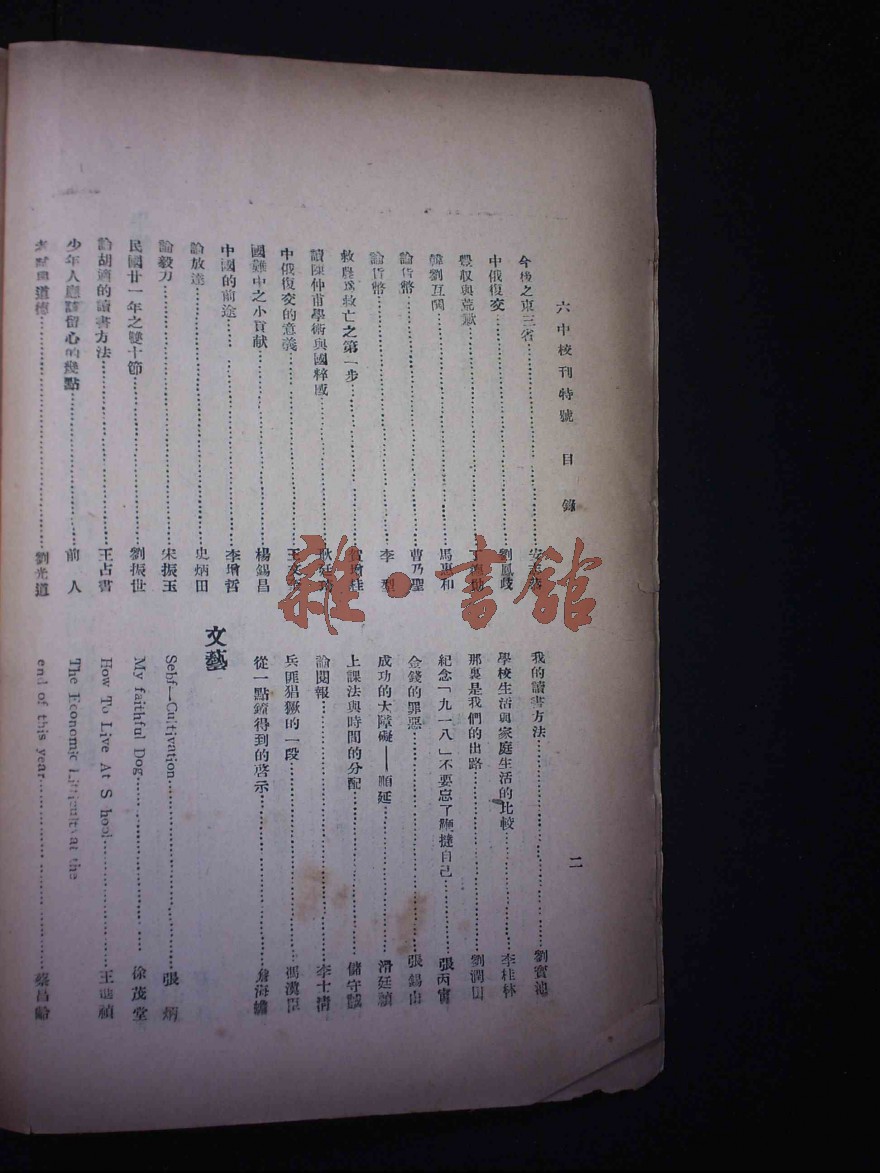 六中校刊特號 目錄
二
今後之東三省
中俄復交 劉鳳岐
豐収與荒歉
韓劉互鬨 馬惠和
論貨幣 曹乃聖
論貨幣 李
救農爲救亡之第一步 增桂
讀陳仲甫學術與國粹感
中俄復交的意義 王
國難中之小貢献 楊錫昌
中國的前途 李增哲
論放達 史炳田
論毅力 宋振玉
民國廿一年之雙十節 劉振世
論胡適的讀書方法 王占書
少年人應該留心的幾點 前人
道德 劉光道
我的讀書方法 劉實
學校生活與家庭生活的比較 李桂林
那裏是我們的出路 劉潤田
紀念「九一八」不要忘了鞭撻自己 張丙寅
金錢的罪惡 張錫由
成功的大障礙——順延 滑廷
上課法與時間的分配 儲守
論閱報 李士清
兵匪猖獗的一段 馮漢臣
從一點鐘得到的啓示 詹海
文藝
Sebf—Cultivation 張炳
My faithful Dog 徐茂堂
How To Live At S hool 王
The Economic at the
end of this year 蔡昌齡
雜·書舘